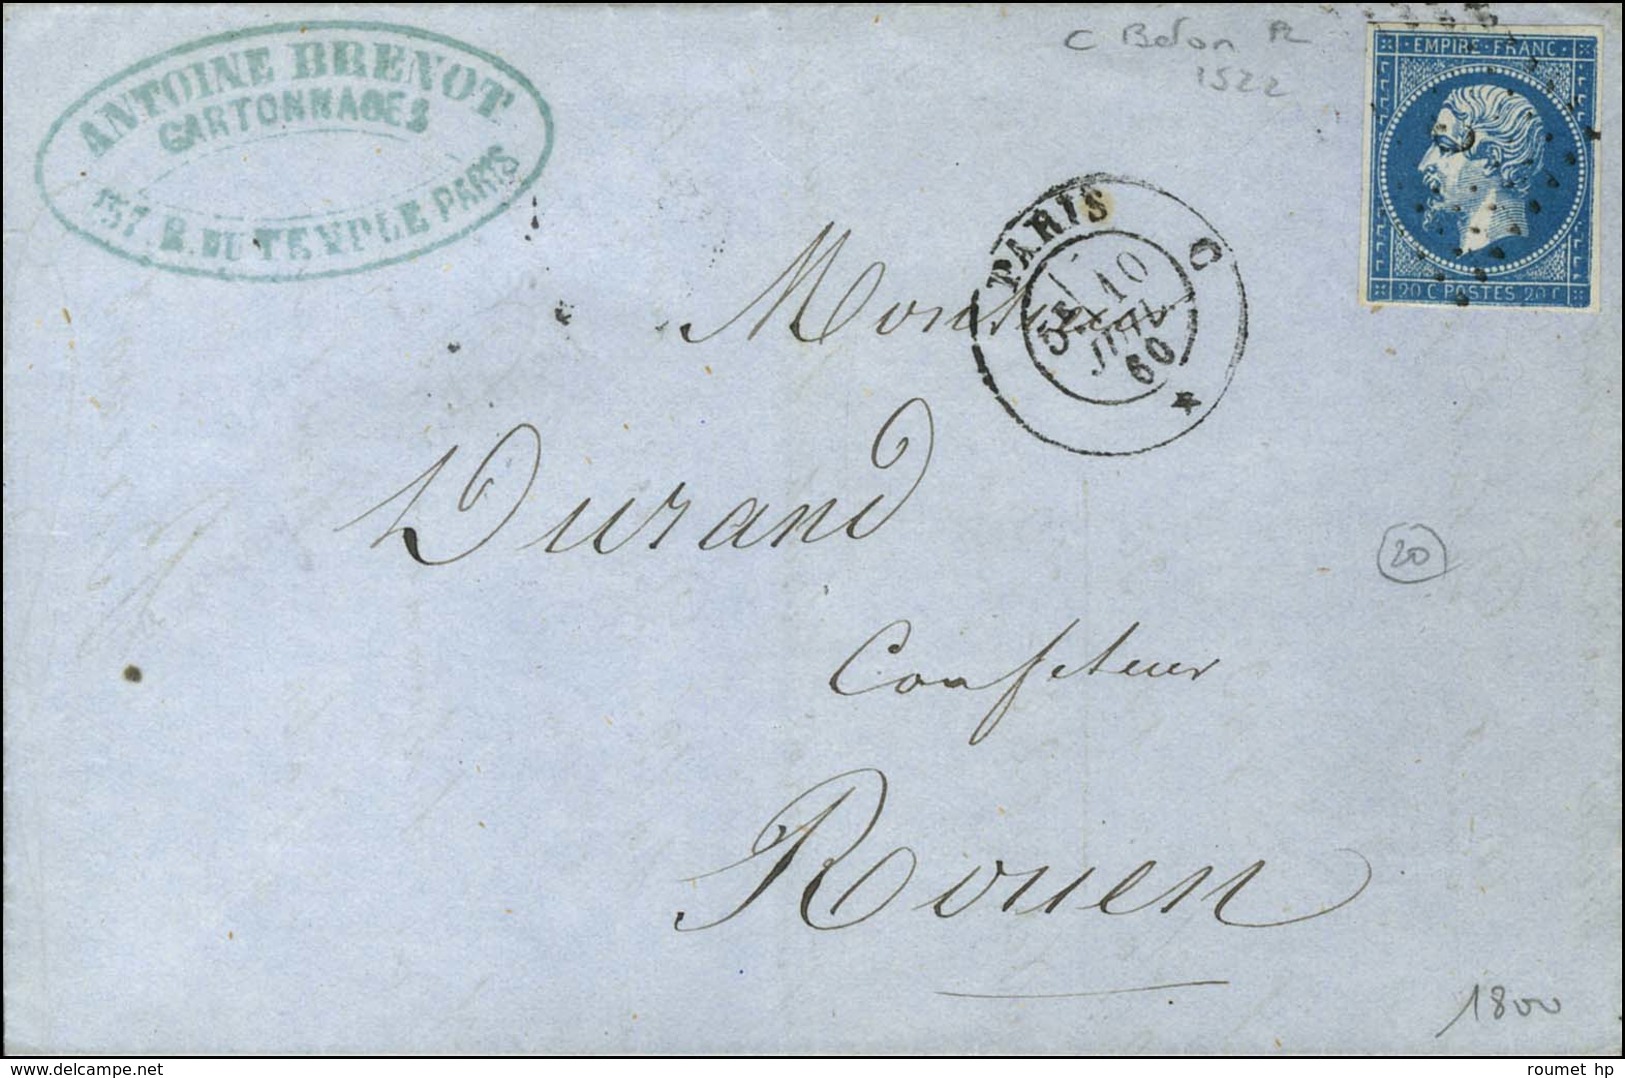 ANTOINE BRENOT
CARTONNAGES
157. R. DU TEMPLE PARIS
C Bélon
1522
EMPIRE · FRANC ·
C
20 C POSTES 20 C
PARIS C
5E 10
JUIL
60
Monsieur
Durand
Confiteur
Rouen
20
1800
www.delcampe.net
roumet hp